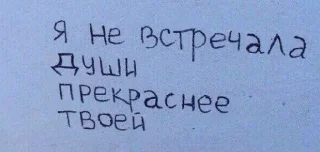 Я не встречала
души
прекраснее
твоей